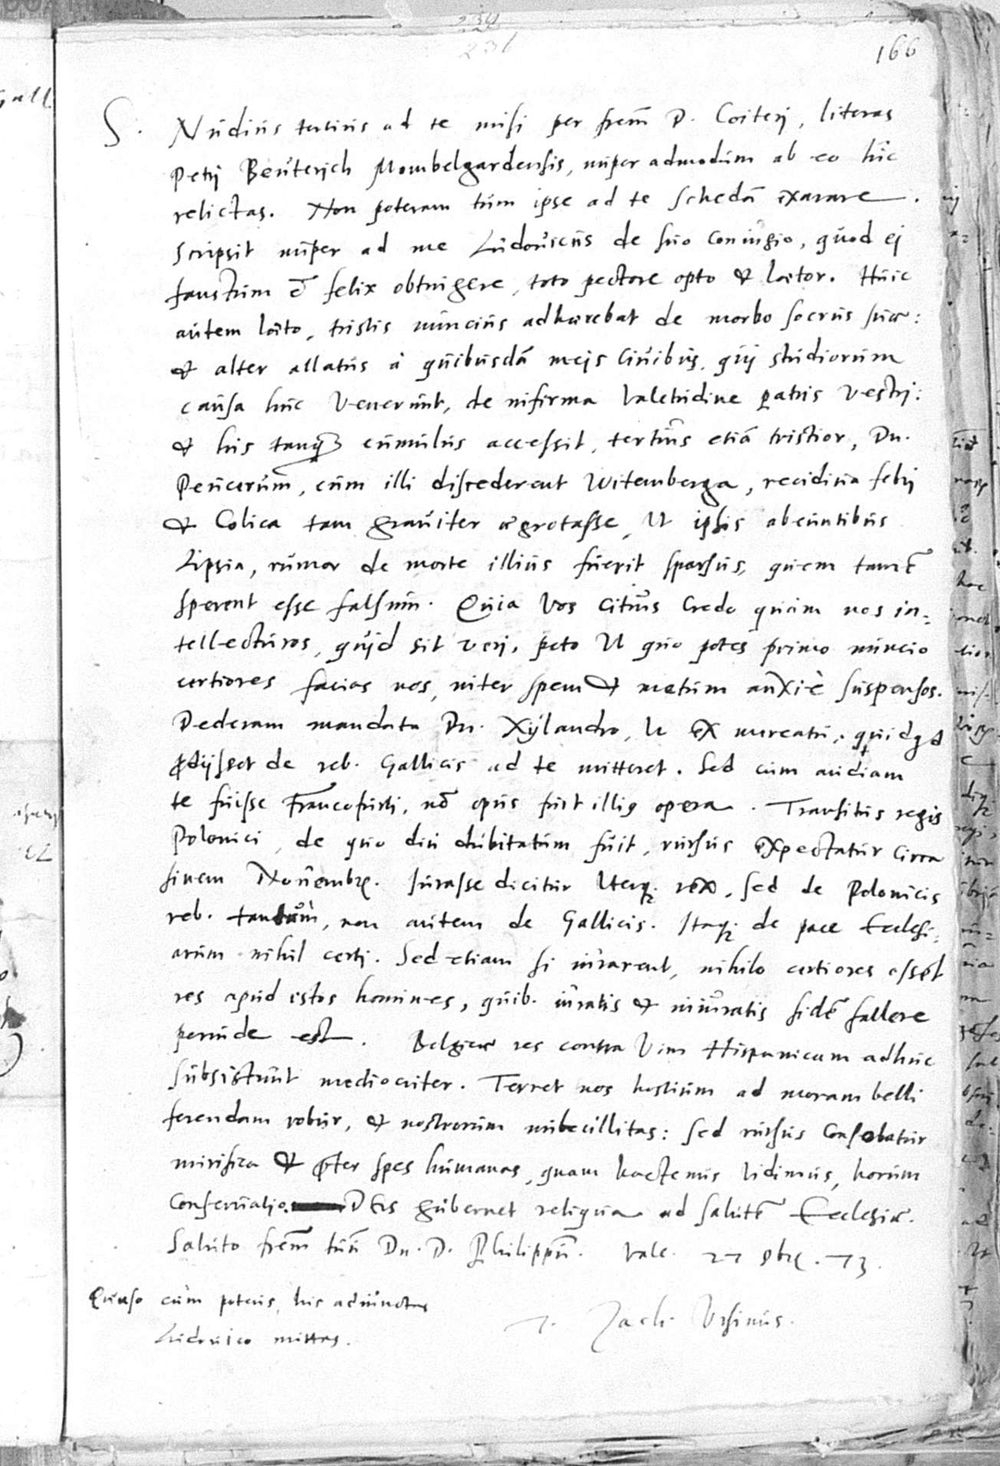 231
166
S. Nudius tertius ad te misi per frem̄ D. Coiterj, literas
Petrj Beuterjch Mombelgardensis, nuper admodum ab eo hic
relictas. Non poteram tum ipse ad te schedā exarare.
Scripsit nuper ad me Ludovicus de suo coniugio, quod ej
faustum & felix obtingere, toto pectore opto & laetor. Huic
autem laeto, tristis nuncius adhaerebat de morbo socrus suae:
& alter allatus à quibusdā meis civibus, quj studiorum
causa huc venerunt, de infirma valetudine patris vestrj:
& his tanq̄ cumulus accessit, tertius etiā tristior, Dn.
Peucerum, cum illi discederent Witemberga, recidiva febrj
& Colica tam graviter aegrotasse, ut ipsis abeuntibus
Lipsia, rumor de morte illius fuerit sparsus, quem tamē
sperent esse falsum. Quia vos citius credo quam nos in-
tellecturos, quid sit verj, peto ut quo potes primo nuncio
certiores facias nos, inter spem & metum anxiè suspensos.
Dederam mandata Dn. Xylandro, ut ex mercatu, quidqd
prodijsset de reb. Gallicis ad te mitteret. Sed cum audiam
te fuisse Francofurti, nō opus fuit illius opera. Transitus regis
Polonici, de quo diu dubitatum fuit, rursus expectatur circa
finem Novembr. Jurasse dicitur uterq; rex, sed de Polonicis
reb. tantum, non autem de Gallicis. Itaq; de pace Ecclesi-
arum nihil certj. Sed etiam si iurarent, nihilo certiores essēt
res apud istos homines, quib. iuratis & iniuratis fidē fallere
perinde est. Belgicae res contra vim Hispanicam adhuc
subsistunt mediocriter. Terret nos hostium ad moram belli
ferendam robur, & nostrorum imbecillitas: sed rursus consolatur
mirifica & praeter spes humanas, quam hactenus vidimus, horum
conservatio. Deus gubernet reliqua ad salutē Ecclesiae.
Saluto frem̄ tuū Dn. D. Philippū. Vale. 27 8br. 73.
Quaeso cum poteris, his adiunctas
Ludovico mittas.
T. Zach. Ursinus.